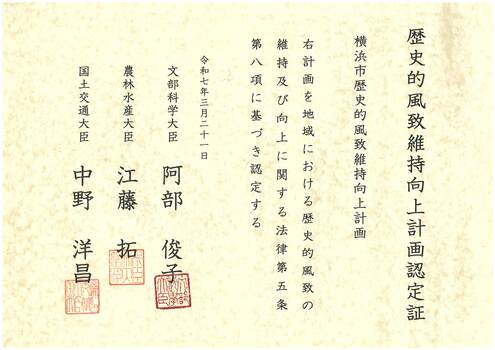 歴史的風致維持向上計画認定証
横浜市歴史的風致維持向上計画
右計画を地域における歴史的風致の
維持及び向上に関する法律第五条
第八項に基づき認定する
令和七年三月二十一日
文部科学大臣 阿部 俊子
農林水産大臣 江藤 拓
国土交通大臣 中野 洋昌